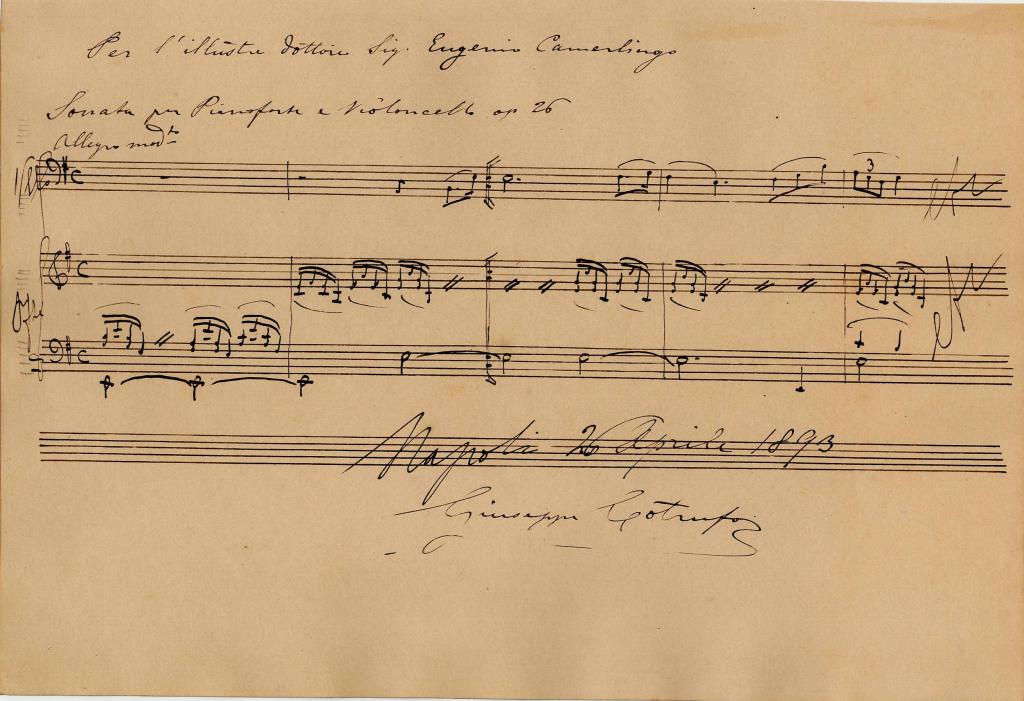 Per l'illustre dottore Sig. Eugenio Camerlingo
Sonata per Pianoforte e Violoncello op 26
Allegro modto
3
Napoli 26 Aprile 1893
Giuseppe Cotrufo